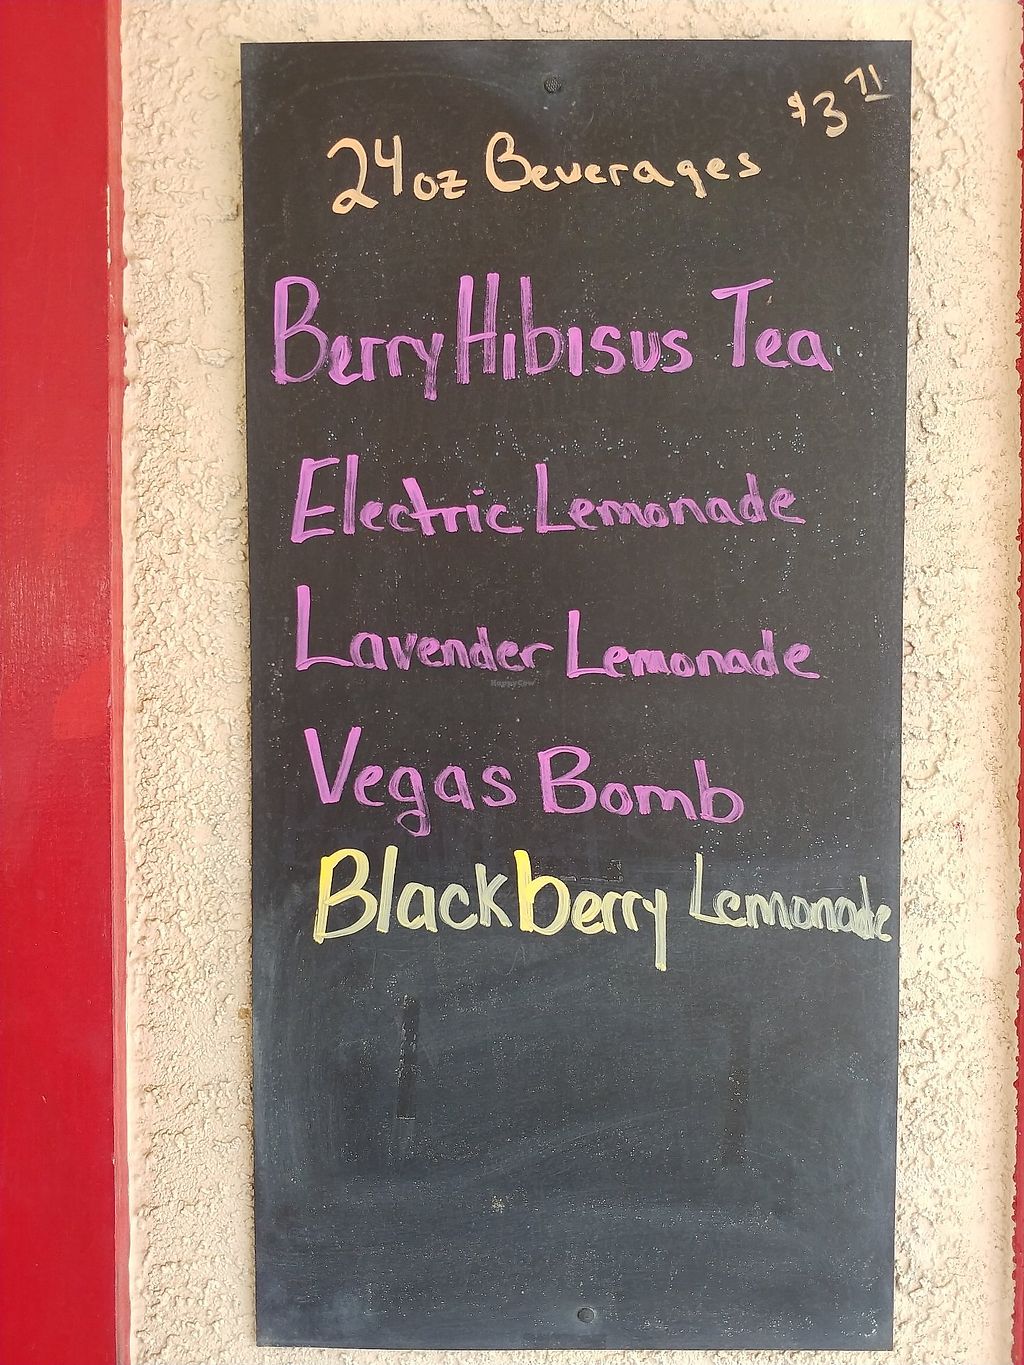 $3 71
24oz Beverages
Berry Hibisus Tea
Electric Lemonade
Lavender Lemonade
HappyCow
Vegas Bomb
Blackberry Lemonade